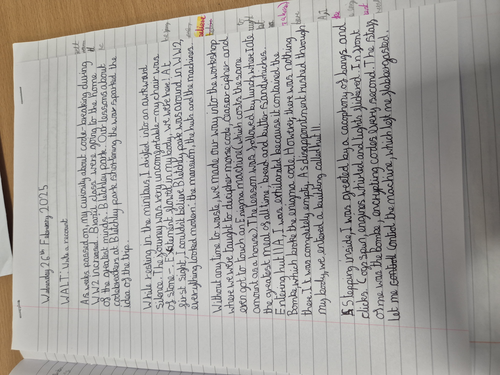 Wednesday 26th February 2025
WALT: write a recount
As was excited on, my curiosity about code-breaking during
WW2 increased. Bronte class were going to the home
of the greatest minds: Bletchley park. Our lessons about
codebreakers at Bletchley park shortening the war sparked the
idea of the trip.
While resting in the minibus, I drifted into an awkward
silence. The journey was very uncomfortable - my chair was
of stone -. Excitement swirled in my body: we were here! At
first sight, I couldn't believe Bletchley park was around in WW2,
everything looked modern: the mansion, the huts and the machines.
Without any time to waste, we made our way into the workshop
where we were taught to decipher morse code, Caesar cipher and
even got to touch an Enigma machine (which costs the same
amount as a house)! The lesson was followed by lunch, where I ate
the greatest meal of all time, bread and butter sandwiches.
Entering hut 11A, I was exhilarated because it contained the
Bombe, which broke the enigma code. However, there was nothing
there. It was completely empty. As disappointment rushed through
my body, we entered a building called hut 11.
Stepping inside, I was greeted by a cacophony of bangs and
clicks. Cogs spun, engines whirled and lights flickered. In front
of me was the bombe, encrypting codes every second. The staff
let me control the machine, which left me flabbergasted.